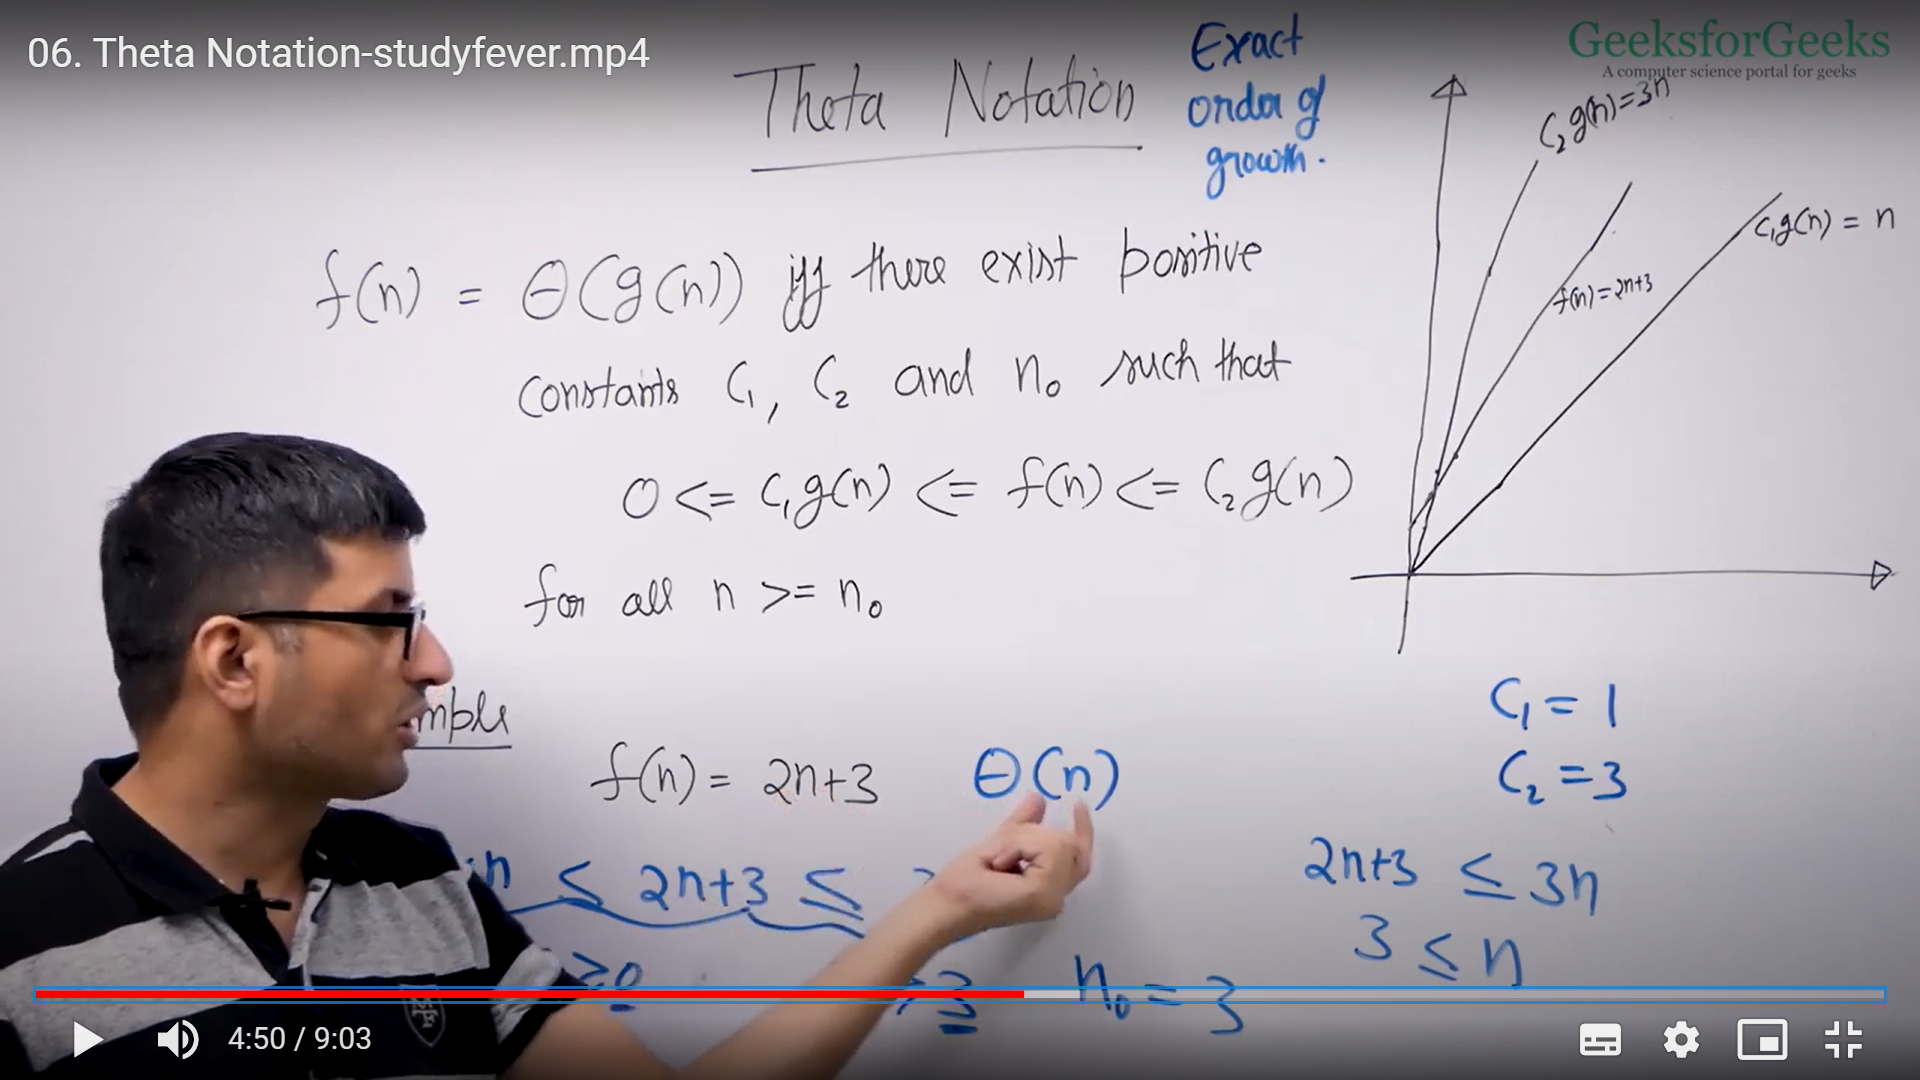 06. Theta Notation-studyfever.mp4
GeeksforGeeks
A computer science portal for geeks
Theta Notation
Exact
order of
growth.
C₂g(n)=3n
C₁g(n) = n
f(n)=2n+3
f(n) = Θ(g(n)) iff there exist positive
constants C₁, C₂ and n₀ such that
0 <= C₁g(n) <= f(n) <= C₂g(n)
for all n >= n₀
f(n) = 2n+3 Θ(n)
C₁ = 1
C₂ = 3
n ≤ 2n+3 ≤
2n+3 ≤ 3n
3 ≤ n
≥0
3
n₀ = 3
4:50 / 9:03